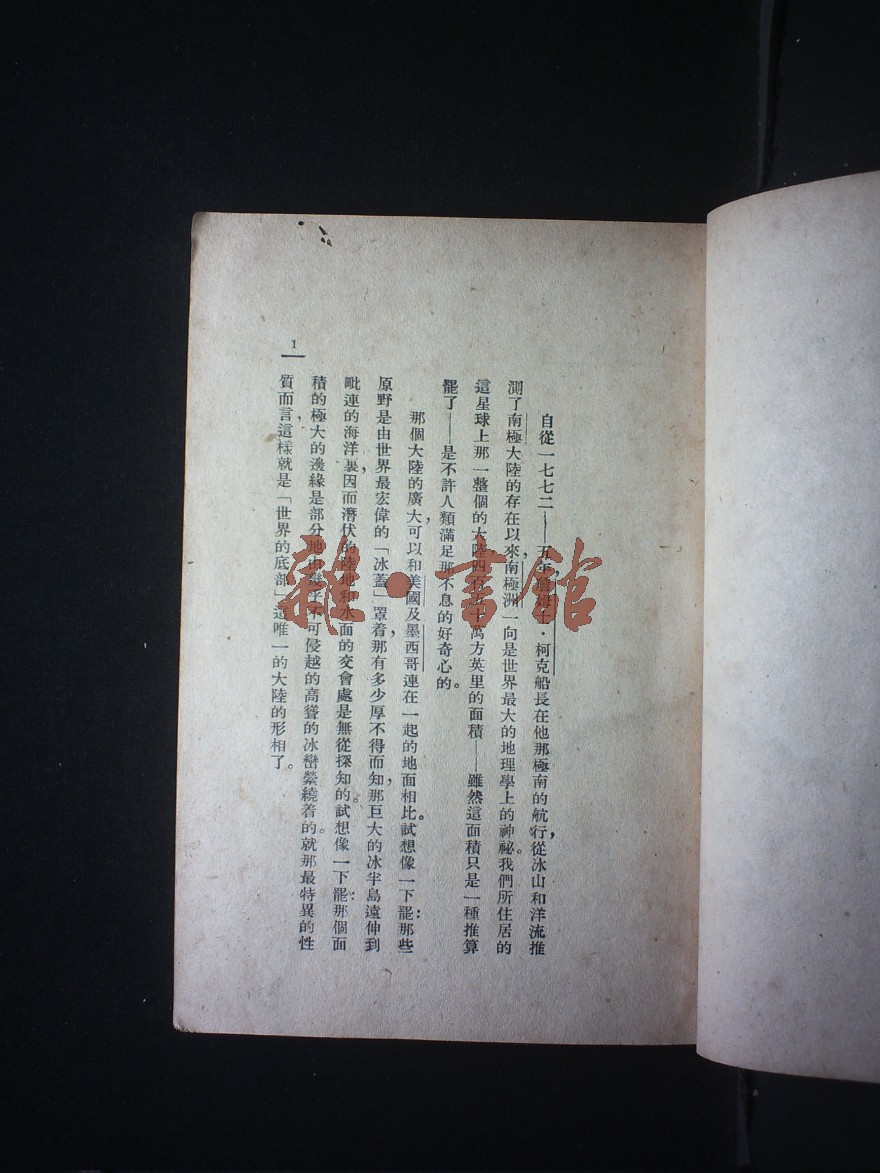 自從一七七二——五年詹姆士·柯克船長在他那極南的航行，從冰山和洋流推
測了南極大陸的存在以來，南極洲一向是世界最大的地理學上的神祕。我們所住居的
這星球上那一整個的大陸四百五十萬方英里的面積——雖然這面積只是一種推算
罷了——是不許人類滿足那不息的好奇心的。
那個大陸的廣大，可以和美國及墨西哥連在一起的地面相比。試想像一下罷：那些
原野是由世界最宏偉的「冰蓋」罩着，那有多少厚不得而知，那巨大的冰半島遠伸到
毗連的海洋裏，因而潛伏的陸地和水面的交會處是無從探知的。試想像一下罷：那個面
積的極大的邊緣是部分地由幾乎不可侵越的高聳的冰巒縈繞着的。就那最特異的性
質而言，這樣就是「世界的底部」這唯一的大陸的形相了。
1
雜·書館